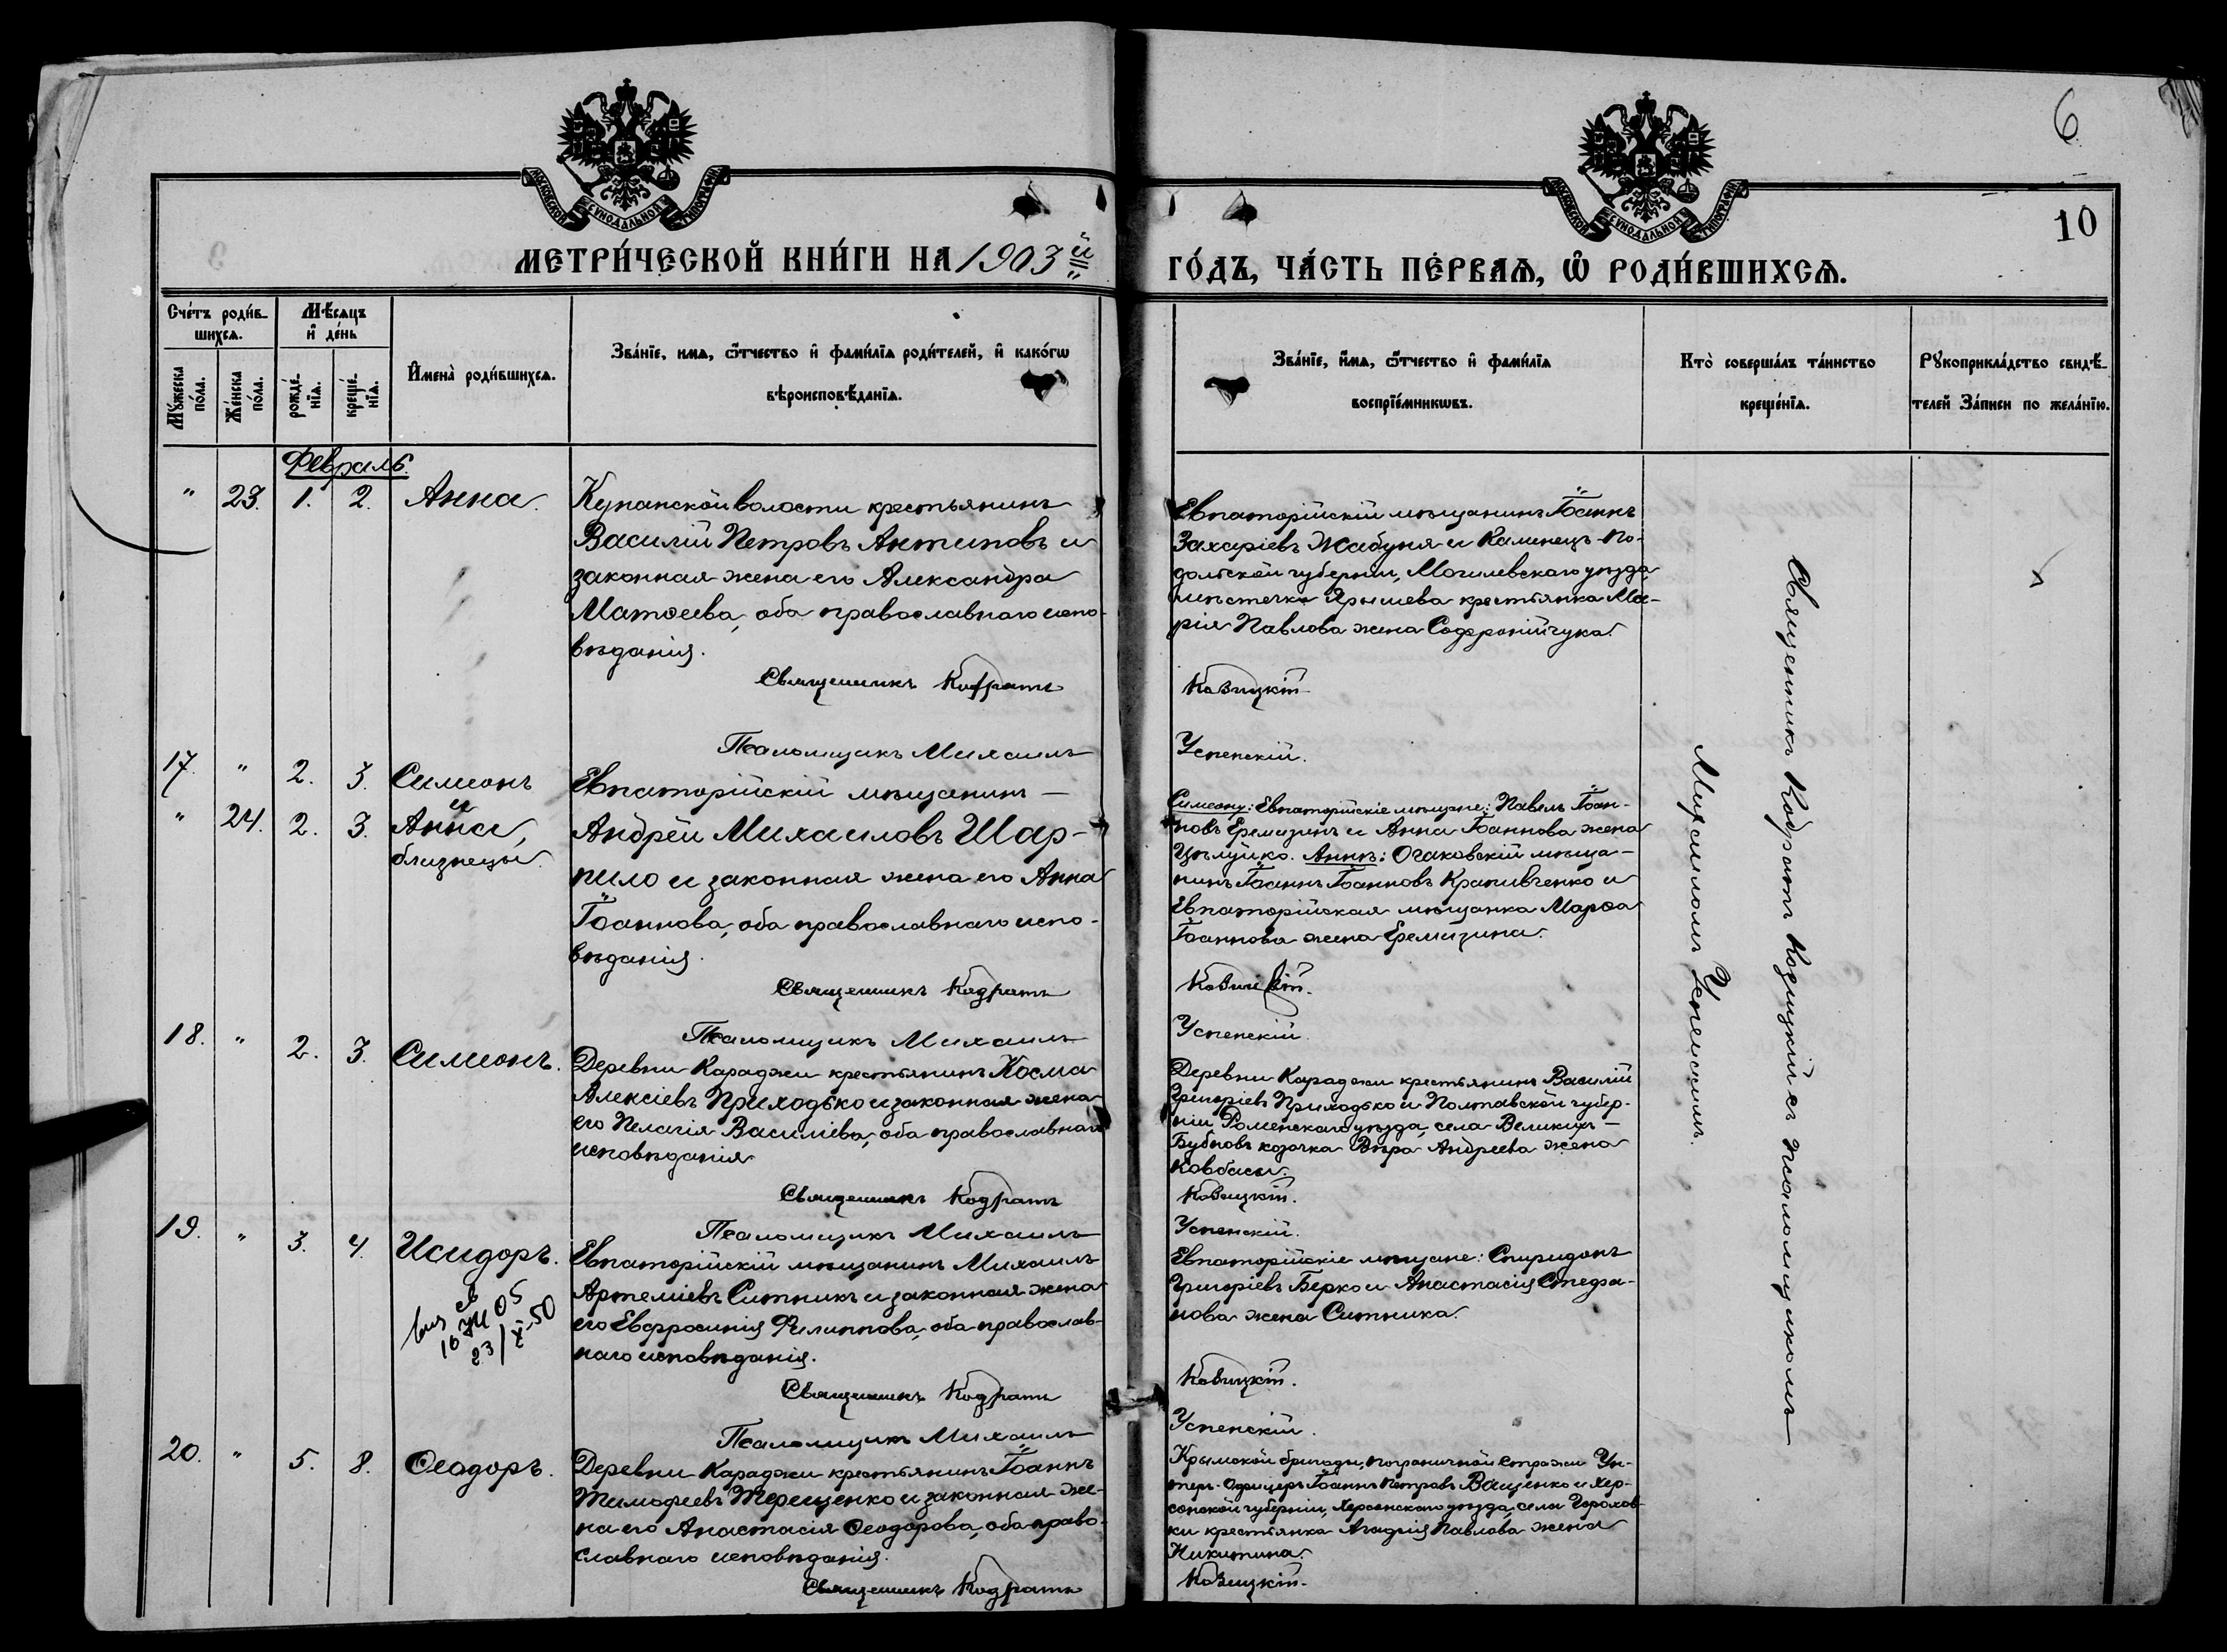 6
10
МОСКОВСКОЙ СѴНОДАЛЬНОЙ ТИПОГРАФІИ
МОСКОВСКОЙ СѴНОДАЛЬНОЙ ТИПОГРАФІИ
МЕТРИ́ЧЕСКОЙ КНИ́ГИ НА 1903й
ГО́ДЪ, ЧА́СТЬ ПЕ́РВАѦ, Ѽ РОДИ́ВШИХСѦ.
Сче́тъ роди́в-
шихсѧ.
Мꙋ́жеска по́ла.
Же́нска по́ла.
Мѣ́сѧцъ
и҆ де́нь
рожде́-
нїѧ.
креще́-
нїѧ.
И҆мена̀ роди́вшихсѧ.
Зва́нїе, имѧ, ѻ҆́тчество и҆ фами́лїѧ роди́телей, и҆ како́гѡ
вѣроисповѣ́данїѧ.
Зва́нїе, и҆́мѧ, ѻ҆́тчество и҆ фами́лїѧ
воспрїе́мникѡвъ.
Кто̀ соверша́лъ та́инство
креще́нїѧ.
Рꙋкоприкла́дство свидѣ́-
телей За́писи по жела́нїю.
Февраль.
" 23. 1. 2. Анна.
Купанской волости крестьянинъ
Василій Петровъ Антиповъ и
законная жена его Александра
Матѳеева, оба православнаго испо-
вѣданія.
Священникъ Кодратъ
Псаломщикъ Михаилъ
Евпаторійскій мѣщанинъ Іоаннъ
Захаріевъ Жабуня и Каменецъ-По-
дольской губерніи, Могилевскаго уѣзда
мѣстечка Ярышева крестьянка Ма-
рія Павлова жена Софронійчука.
Козицкій
Успенскій.
17. " 2. 3. Симеонъ
и
" 24. 2. 3. Анна,
близнецы.
Евпаторійскій мѣщанинъ —
Андрей Михаиловъ Шар-
пило и законная жена его Анна
Іоаннова, оба православнаго испо-
вѣданія.
Священникъ Кодратъ
Псаломщикъ Михаилъ
Симеону: Евпаторійскіе мѣщане: Павелъ Іоан-
новъ Еремизинъ и Анна Іоаннова жена
Цѣлуйко. Аннѣ: Очаковскій мѣща-
нинъ Іоаннъ Іоанновъ Крапивченко и
Евпаторійская мѣщанка Марѳа
Іоаннова жена Еремизина.
Козицкій.
Успенскій.
18. " 2. 3. Симеонъ.
Деревни Караджи крестьянинъ Косма
Алексіевъ Приходько и законная жена
его Пелагія Василіева, оба православнаго
исповѣданія
Священникъ Кодратъ
Псаломщикъ Михаилъ
Деревни Караджи крестьянинъ Василій
Григоріевъ Приходько и Полтавской губер-
ніи Роменскаго уѣзда, села Великихъ —
Бубновъ козачка Вѣра Андреева жена
Ковбасы.
Козицкій.
Успенскій.
19. " 3. 4. Исидоръ.
05
23/X-50
Евпаторійскій мѣщанинъ Михаилъ
Артеміевъ Ситникъ и законная жена
его Евфросинія Филиппова, оба православ-
наго исповѣданія.
Священникъ Кодратъ
Псаломщикъ Михаилъ
Евпаторійскіе мѣщане: Спиридонъ
Григоріевъ Берко и Анастасія Стефа-
нова жена Ситника.
Козицкій.
Успенскій.
20. " 5. 8. Ѳеодоръ.
Деревни Караджи крестьянинъ Іоаннъ
Тимофеевъ Терещенко и законная же-
на его Анастасія Ѳеодорова, оба право-
славнаго исповѣданія.
Священникъ Кодратъ
Крымской бригады, пограничной стражи Ун-
теръ-Офицеръ Іоаннъ Петровъ Ващенко и Хер-
сонской губерніи, Херсонскаго уѣзда, села Горохов-
ки крестьянка Агафія Павлова жена
Никитина.
Козицкій.
Священникъ Кодратъ Козицкій съ псаломщикомъ
Михаиломъ Успенскимъ.